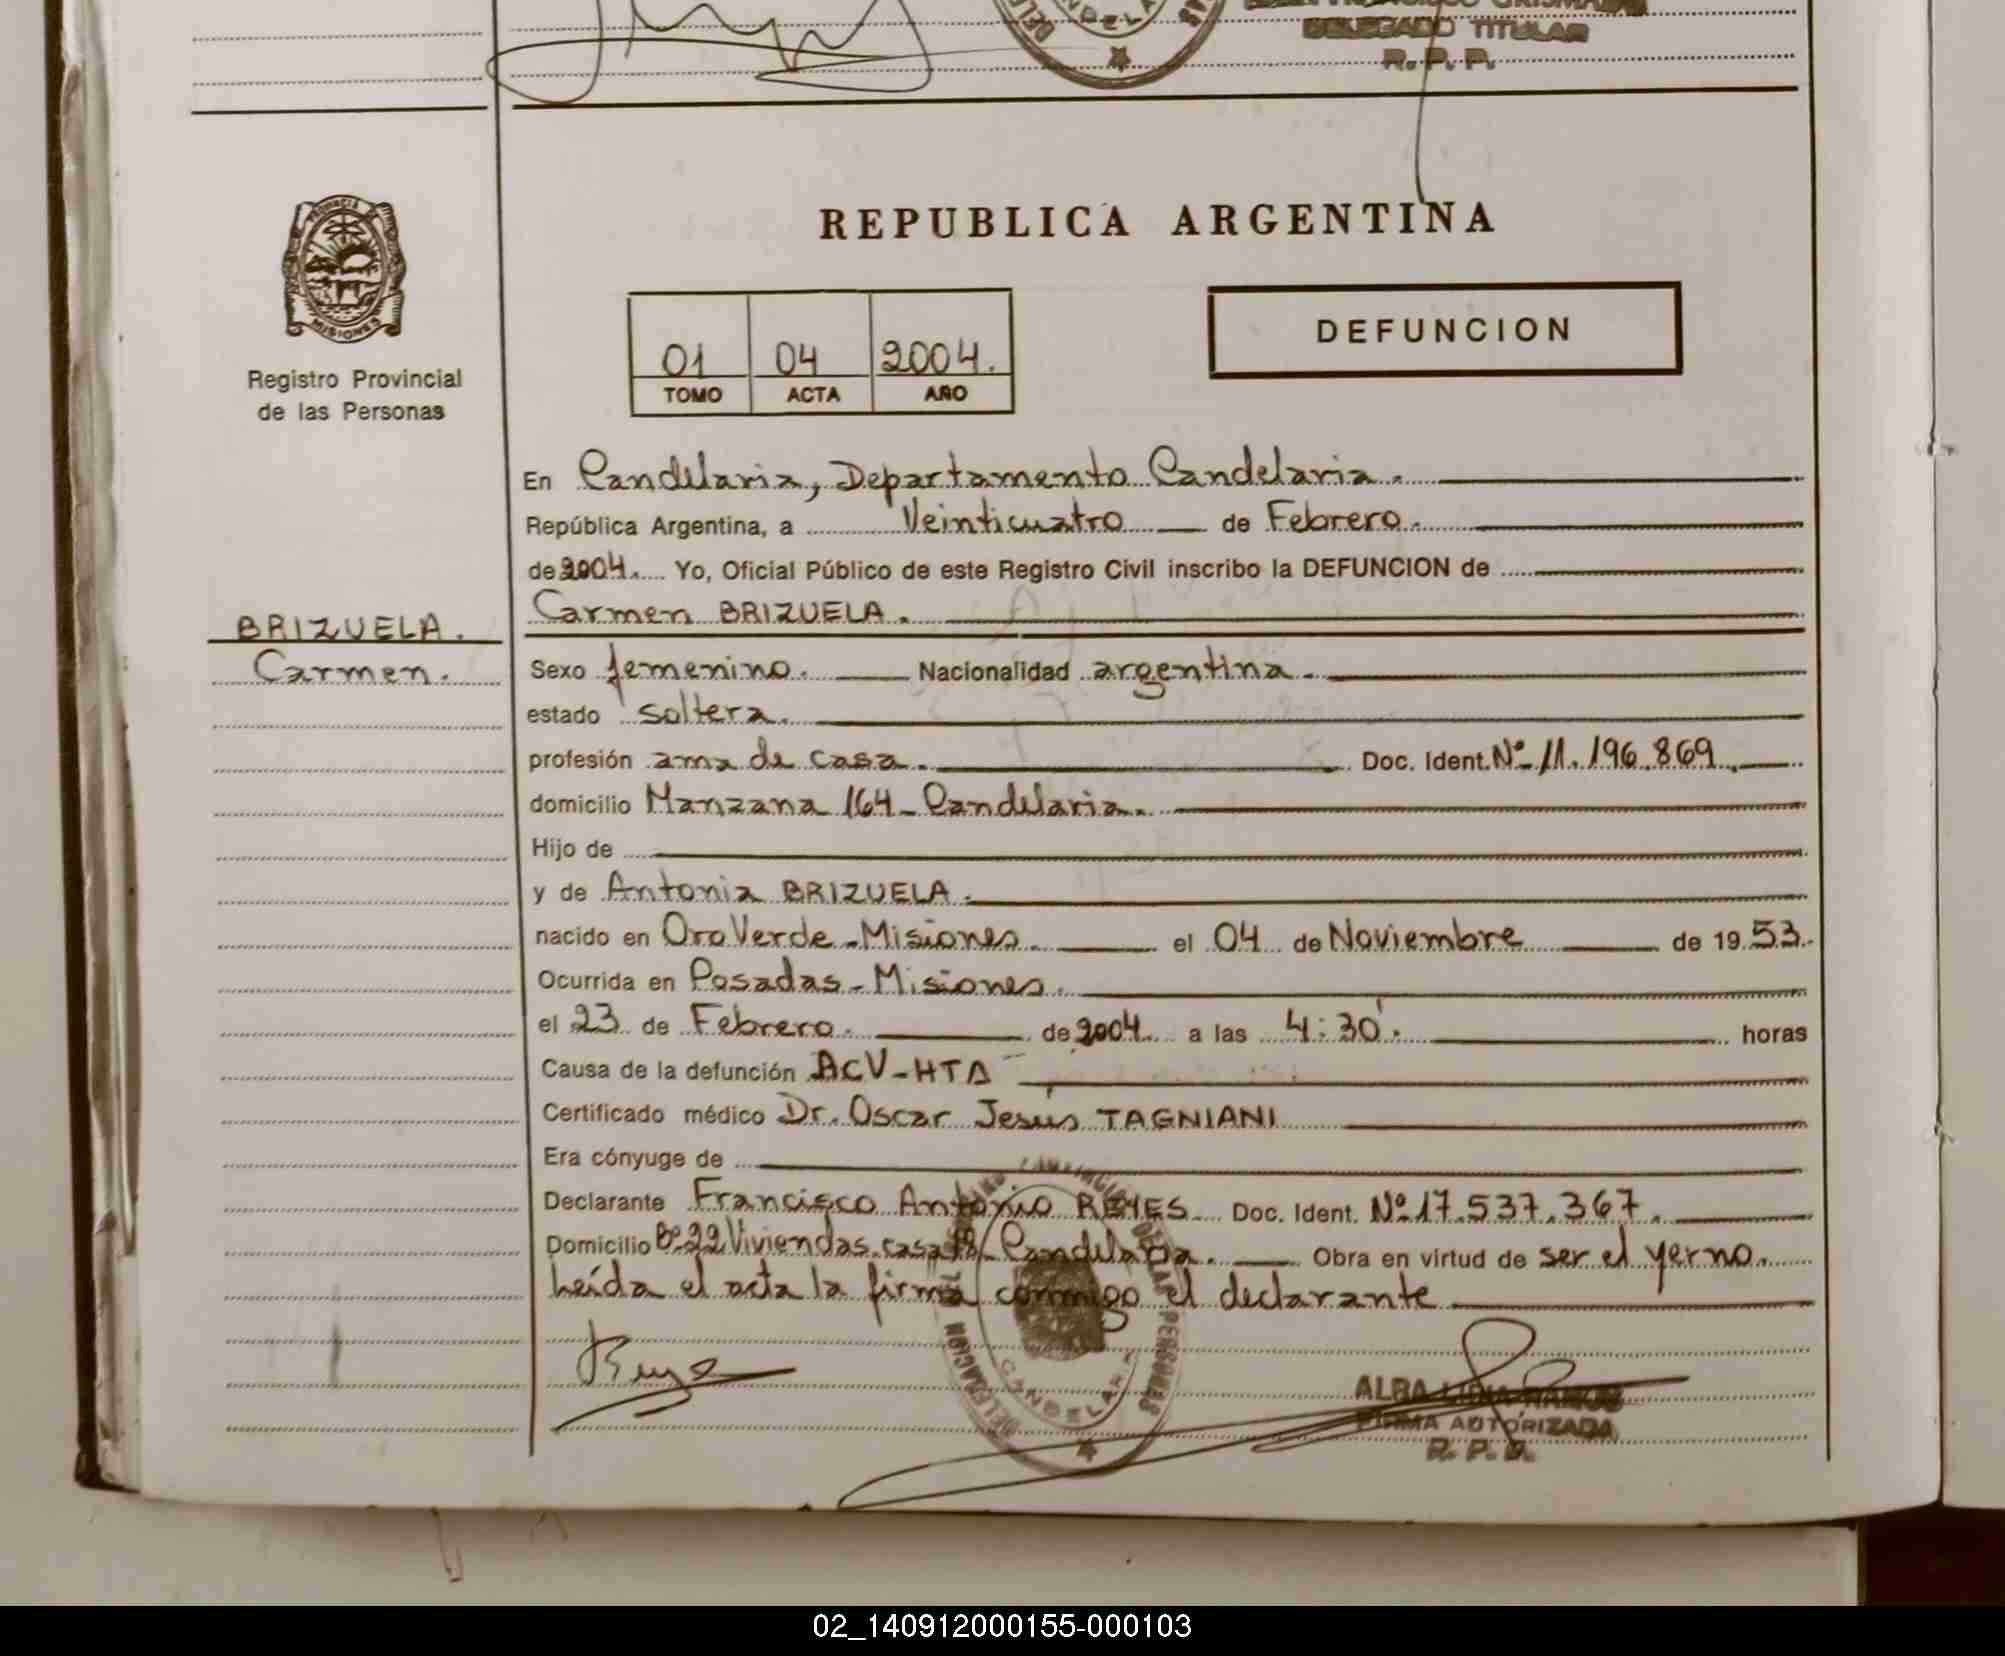 DELEGADO TITULAR
R. P. P.
PROVINCIA DE
MISIONES
Registro Provincial
de las Personas
REPUBLICA ARGENTINA
01 04 2004.
TOMO ACTA AÑO
DEFUNCION
En Candelaria, Departamento Candelaria.
República Argentina, a Veinticuatro de Febrero.
de 2004. Yo, Oficial Público de este Registro Civil inscribo la DEFUNCION de
Carmen BRIZUELA.
BRIZUELA.
Carmen.
Sexo femenino. Nacionalidad argentina.
estado soltera.
profesión ama de casa. Doc. Ident. Nº 11.196.869.
domicilio Manzana 164 - Candelaria.
Hijo de
y de Antonia BRIZUELA.
nacido en Oro Verde - Misiones. el 04 de Noviembre de 19 53.
Ocurrida en Posadas - Misiones.
el 23 de Febrero. de 2004. a las 4:30'. horas
Causa de la defunción ACV-HTA
Certificado médico Dr. Oscar Jesús TAGNIANI
Era cónyuge de
Declarante Francisco Antonio REYES Doc. Ident. Nº 17.537.367.
Domicilio Bº 22 Viviendas casa Candelaria. Obra en virtud de ser el yerno.
Leída el acta la firma conmigo el declarante
DELEGACION CANDELARIA
ALBA LIDIA RAMOS
FIRMA AUTORIZADA
R. P. P.
02_140912000155-000103